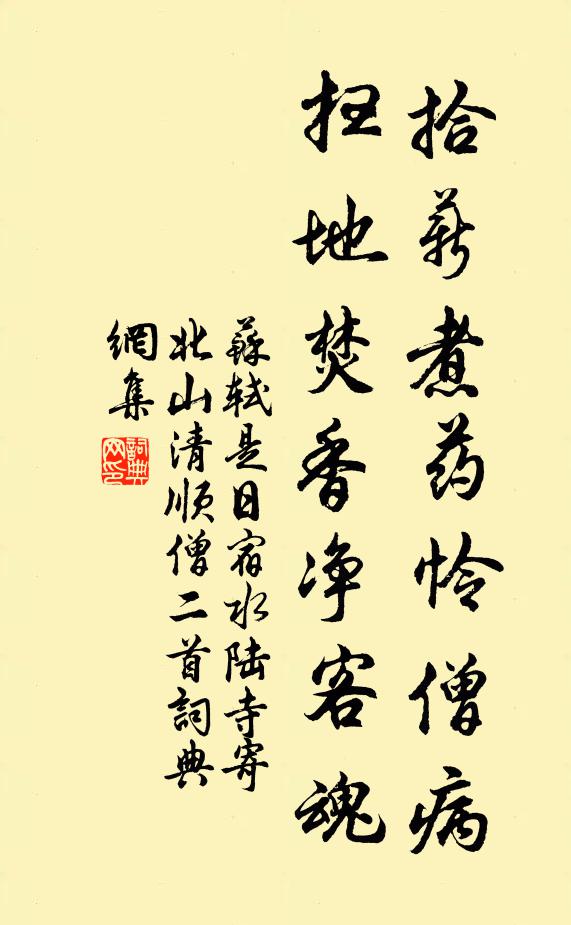 拾薪煮药怜僧病
扫地焚香净客魂
蘇轼是日宿水陆寺寄
北山清顺僧二首詞典
網集
詞典网印